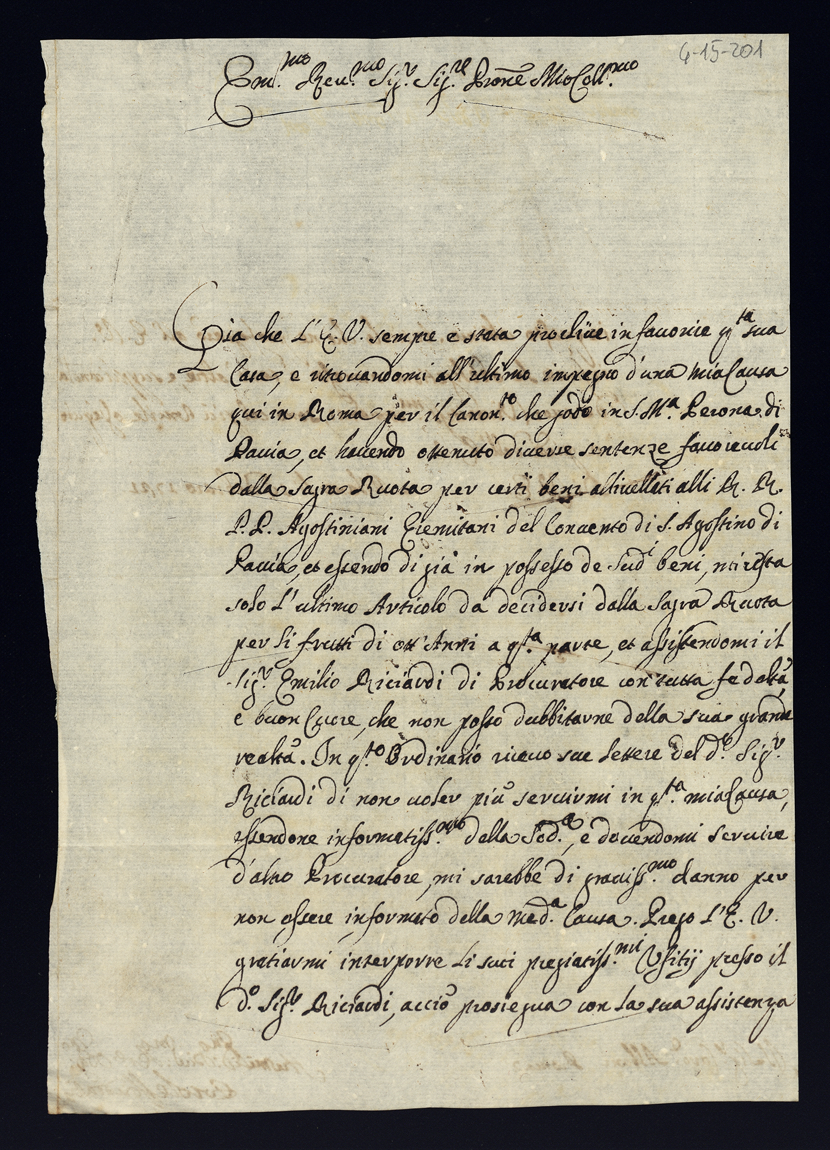 4-15-201
Em.mo Reu.mo Sig.r Sig.re Prone Mio Coll.mo
Gia che L'E. V. sempre e stata procliue in fauorire q.ta sua
Casa, e ritrouandomi all'ultimo impegno d'una mia Causa
qui in Roma per il Canon.to che godo in S. M.a Perona di
Pauia, et hauendo ottenuto diuerse sentenze fauoreuoli
dalla Sagra Ruota per certi beni aliuellati alli R. R.
P. P. Agostiniani Eremitani del Conuento di S. Agostino di
Pauia, et essendo di già in possesso de sud.i beni, mi resta
solo L'ultimo Articolo da decidersi dalla Sagra Ruota
per li frutti di ott'Anni a q.ta parte, et assistendomi il
Sig.r Emilio Riciardi di Procuratore con tutta fedeltà,
e buon Cuore, che non posso dubbitarne della sua grande
realtà. In q.to Ordinario riceuo sue lettere del d.o Sig.r
Riciardi di non uoler più seruirmi in q.ta mia Causa,
essendone informatiss.mo della Sod.a, e douendomi seruire
d'altro Procuratore, mi sarebbe di grauiss.mo danno per
non essere informato della med.a Causa. Prego L'E. V.
gratiarmi interporre li suoi pregiatiss.mi Uffitij presso il
d.o Sig.r Riciardi, acciò prosiegua con la sua assistenza